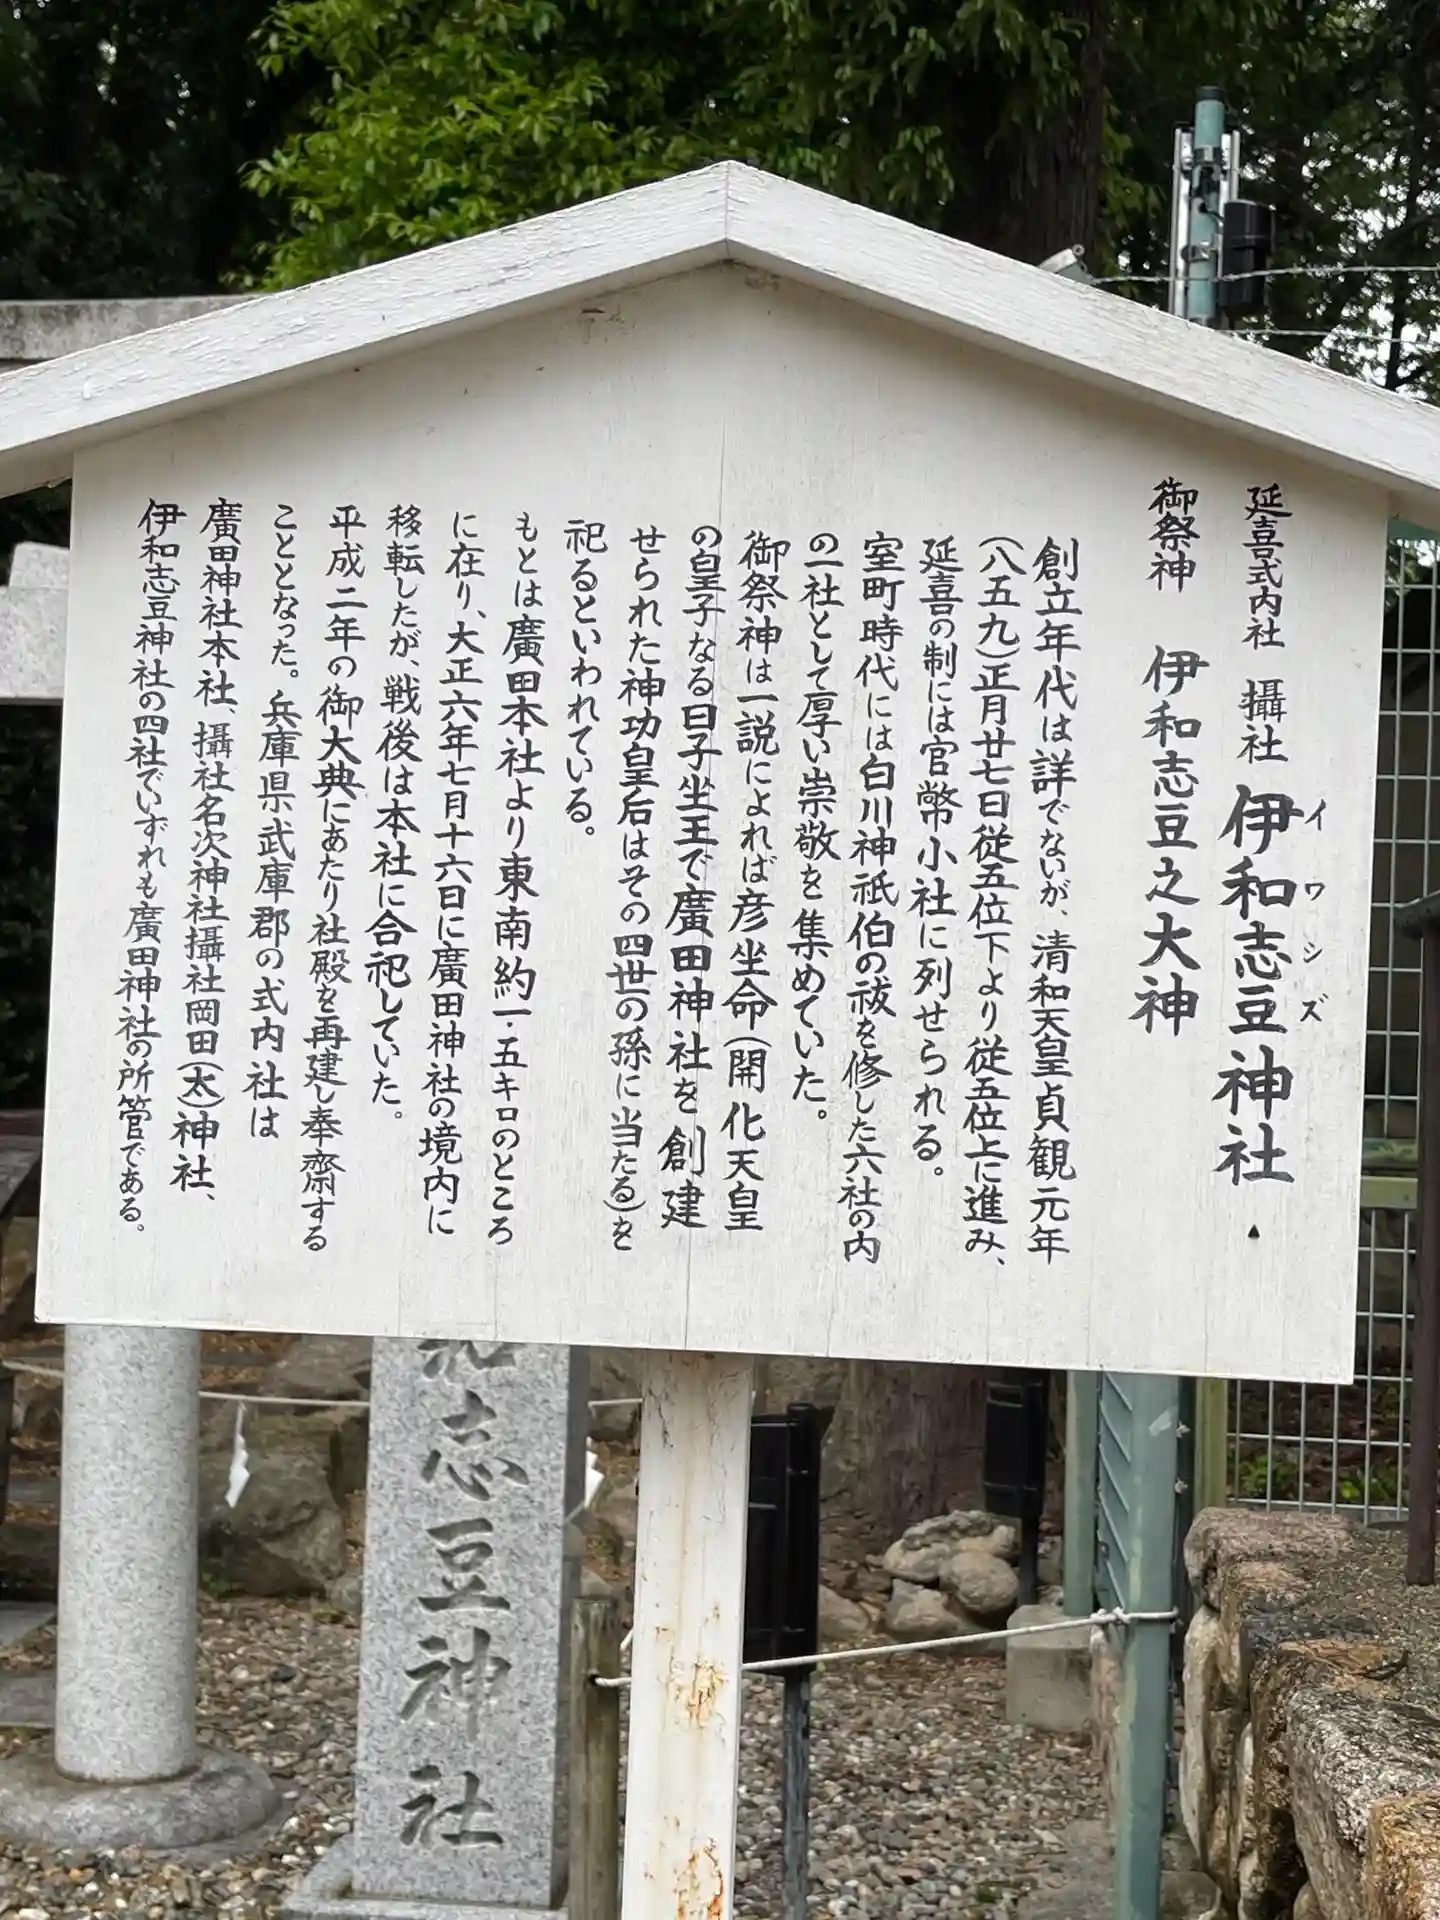 延喜式内社 攝社 伊和志豆神社
イワシズ
御祭神 伊和志豆之大神
創立年代は詳でないが、清和天皇貞観元年
(八五九)正月廿七日従五位下より従五位上に進み、
延喜の制には官幣小社に列せられる。
室町時代には白川神祇伯の祓を修した六社の内
の一社として厚い崇敬を集めていた。
御祭神は一説によれば彦坐命(開化天皇
の皇子なる日子坐王で廣田神社を創建
せられた神功皇后はその四世の孫に当たる)を
祀るといわれている。
もとは廣田本社より東南約一・五キロのところ
に在り、大正六年七月十六日に廣田神社の境内に
移転したが、戦後は本社に合祀していた。
平成二年の御大典にあたり社殿を再建し奉齋する
こととなった。兵庫県武庫郡の式内社は
廣田神社本社、攝社名次神社攝社岡田(太)神社、
伊和志豆神社の四社でいずれも廣田神社の所管である。
和志豆神社